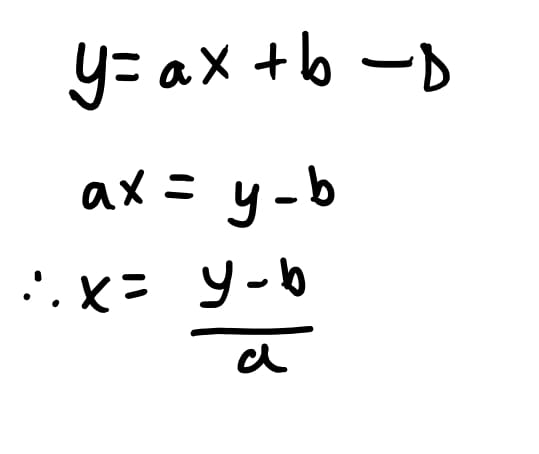 y = ax + b — D
ax = y - b
∴ x = \frac{y - b}{a}